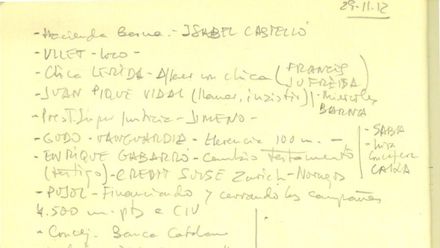 29-11-12
- Hacienda Barna - ISABEL CASTELLÓ
- VLLET - loco -
- Chica LÉRIDA - Affaire con chica (FRANCIS JUFRESA)
- JUAN PIQUE VIDAL (llamar, insistir) | Miercoles BARNA
- Prest. Justicia - JIMENO -
- GODÓ - VANGUARDIA - Herencia 100 m. -
- ENRIQUE GABARRÓ - Cambio testamento
(vertigo) - CREDIT SUISE Zurich -
- SABA
CAIXA
- PUJOL - Financiando y cerrando las campañas
4.500 m. pts a CIU
- Concej. Banca Catalana